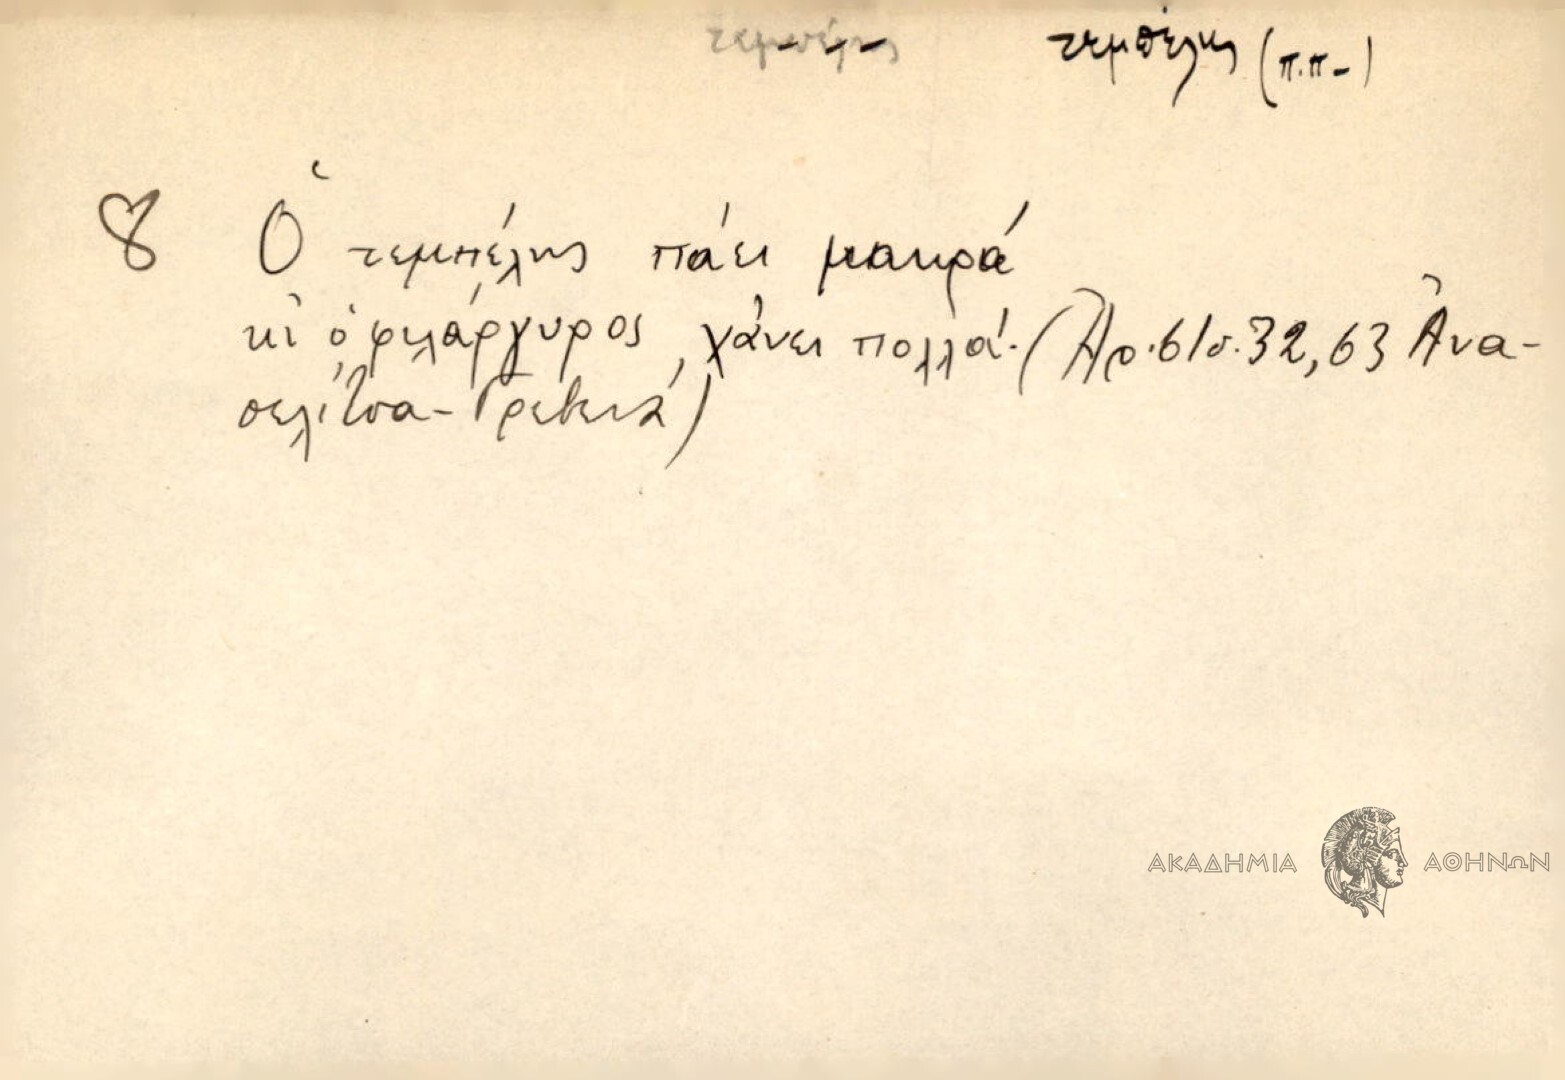 τεμπέλης τεμπέλης (π.π-)
8 Ὁ τεμπέλης πάει μακρά
κι ὁ φιλάργυρος, χάνει πολλά. (Ἀρ. 61 σ. 32, 63 Ἀνα-
σελίτσα - Γρεβενά)
ΑΚΑΔΗΜΙΑ ΑΘΗΝΩΝ